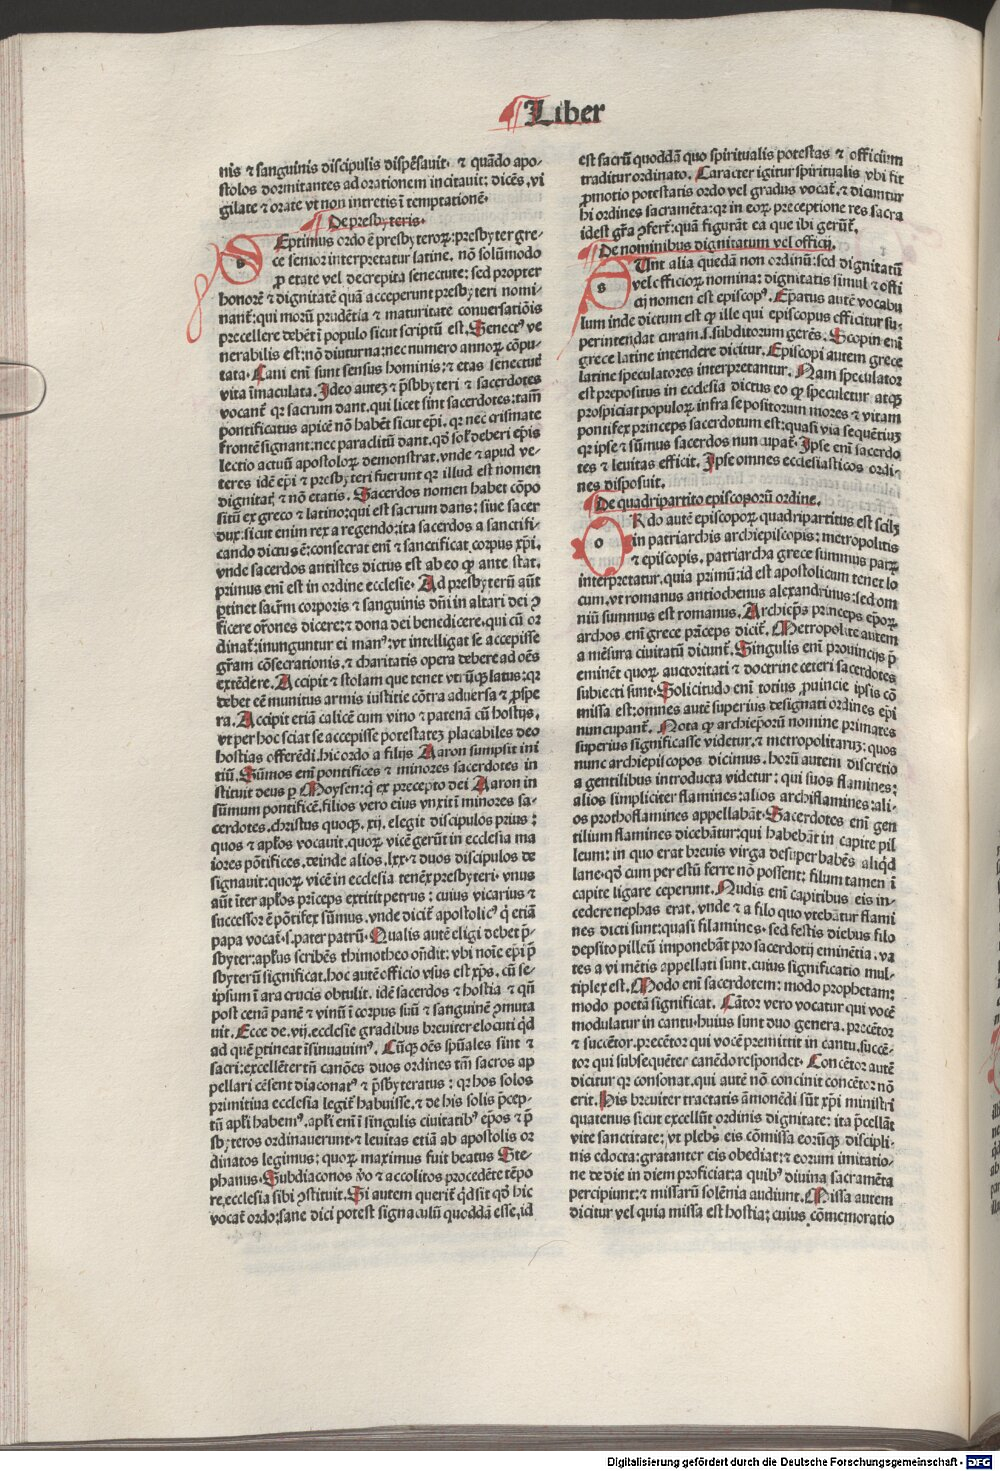 Liber
nis ⁊ sanguinis discipulis dispēsauit. ⁊ quādo apo-
stolos dormitantes ad orationem incitauit: dicēs, vi
gilate ⁊ orate vt non intretis ī temptationē.
De presbyteris.
SEptimus ordo ē presbyteroꝝ: presbyter gre-
ce senior interpretatur latine. nō solūmodo
ꝓ etate vel decrepita senectute: sed propter
honorē ⁊ dignitatē quā acceperunt presbyteri nomi-
nant̄: qui morū prudētia ⁊ maturitate conuersatiōis
precellere debēt ī populo sicut scriptū est. Senectꝰ ve
nerabilis est: nō diuturna: nec numero annoꝝ cōpu-
tata. Cani enī sunt sensus hominis: ⁊ etas senectut̄
vita īmaculata. Ideo autez ⁊ p̄sbyteri ⁊ sacerdotes
vocant̄ qꝛ sacrum dant. qui licet sint sacerdotes: tam̄
pontificatus apicē nō habēt sicut ep̄i. qꝛ nec crismate
frontē signant: nec paraclitū dant. qd̄ sol̄ deberi ep̄is
lectio actuū apostoloꝝ demonstrat. vnde ⁊ apud ve-
teres idē ep̄i ⁊ presbyteri fuerunt qꝛ illud est nomen
dignitat̄ ⁊ nō etatis. Sacerdos nomen habet cōpo
sitū ex greco ⁊ latino: qui est sacrum dans: siue sacer
dux. sicut enim rex a regendo: ita sacerdos a sanctifi-
cando dictus ē: consecrat enī ⁊ sanctificat corpus xp̄i.
vnde sacerdos antistes dictus est ab eo ꝙ ante stat.
primus enī est in ordine ecclesie. Ad presbyterū aūt
ꝑtinet sacr̄m corporis ⁊ sanguinis dn̄i in altari dei ꝯ
ficere or̄ones dicere: ⁊ dona dei benedicere. qui cū or
dinat̄: inunguntur ei manꝰ: vt intelligat se accepisse
gr̄am cōsecrationis. ⁊ charitatis opera debere ad oēs
extēdere. Accipit ⁊ stolam que tenet vtrūqꝫ latus: qꝛ
debet eē munitus armis iustitie cōtra aduersa ⁊ ꝓspe
ra. Accipit etiā calicē cum vino ⁊ patenā cū hostijs.
vt per hoc sciat se accepisse potestatez placabiles deo
hostias offerēdi. hic ordo a filijs Aaron sumpsit ini
tiū. Sūmos enī pontifices ⁊ minores sacerdotes in
stituit deus ꝑ Moysen: q̇ ex precepto dei Aaron in
sūmum pontificē. filios vero eius vnxit in minores sa-
cerdotes. christus quoqꝫ .xij. elegit discipulos prius:
quos ⁊ apl̄os vocauit. quoꝝ vicē gerūt in ecclesia ma
iores pōtifices. deinde alios .lxx. ⁊ duos discipulos de
signauit: quoꝝ vicē in ecclesia tenēt presbyteri. vnus
aūt īter apl̄os prīceps extitit petrus: cuius vicarius ⁊
successor ē pōtifex sūmus. vnde dicit̄ apostolicꝰ q̇ etiā
papa vocat̄ .s. pater patrū. Qualis autē eligi debet p̄-
sbyter: apl̄us scribēs thimotheo on̄dit: vbi noīe ep̄i p̄
sbyterū significat. hoc autē officio vsus est xp̄s. cū se-
ipsum ī ara crucis obtulit. idē sacerdos ⁊ hostia ⁊ qn̄
post cenā panē ⁊ vinū ī corpus suū ⁊ sanguinē ꝯmuta
uit. Ecce de .vij. ecclesie gradibus breuiter elocuti qd̄
ad quē ꝑtineat īsinuauimꝰ. Cūqꝫ oēs spūales sint ⁊
sacri: excellēter tn̄ canōes duos ordines tm̄ sacros ap
pellari cēsent diaconatꝰ ⁊ p̄sbyteratus: qꝛ hos solos
primitiua ecclesia legit̄ habuisse. ⁊ de his solis p̄cep-
tū apl̄i habemꝰ. apl̄i enī ī singulis ciuitatibꝰ ep̄os ⁊ p̄
sbyteros ordinauerunt. ⁊ leuitas etiā ab apostolis or
dinatos legimus: quoꝝ maximus fuit beatus Ste-
phanus. Subdiaconos v̄o ⁊ accolitos procedēte tēpo
re ecclesia sibi ꝯstituit. Si autem querit̄ qd̄ sit qd̄ hic
vocat̄ ordo: sane dici potest signaculū quoddā esse. id
est sacrū quoddā quo spiritualis potestas ⁊ officium
traditur ordinato. Caracter igitur spiritualis vbi fit
ꝓmotio potestatis ordo vel gradus vocat̄. ⁊ dicuntur
hi ordines sacramēta: qꝛ in eoꝝ preceptione res sacra
idest gr̄a ꝯfert̄: quā figurāt ea que ibi gerūt̄.
De nominibus dignitatum vel officij.
SUnt alia quedā non ordinū: sed dignitatū
vel officioꝝ nomina: dignitatis simul ⁊ offi
cij nomen est episcopꝰ. Ep̄atus autē vocabu
lum inde dictum est ꝙ ille qui episcopus efficitur su-
perintendat curam .s. subditorum gerēs. Scopin enī
grece latine intendere dicitur. Episcopi autem grece
latine speculatores interpretantur. Nam speculator
est prepositus in ecclesia dictus eo ꝙ speculetur atqꝫ
prospiciat populoꝝ infra se positorum mores ⁊ vitam
pontifex princeps sacerdotum est: quasi via sequētiuꝫ
qꝛ ipse ⁊ sūmus sacerdos nuncupat̄. Ipse enī sacerdo
tes ⁊ leuitas efficit. Ipse omnes ecclesiasticos ordi-
nes disposuit.
De quadripartito episcoporū ordine.
ORdo autē episcopoꝝ quadripartitus est scilꝫ
in patriarchis archiepiscopis: metropolitis
⁊ episcopis. patriarcha grece summus patꝝ
interpretatur. quia primū: id est apostolicum tenet lo
cum. vt romanus antiochenus alexandrinus: sed om
niū summus est romanus. Archiep̄s princeps ep̄oꝝ.
archos enī grece prīceps dicit̄. Metropolite autem
a mēsura ciuitatū dicunt̄. Singulis enī prouincijs p̄
eminēt quoꝝ auctoritati ⁊ doctrine ceteri sacerdotes
subiecti sunt. Solicitudo enī totius ꝓuincie ipsis cō
missa est: omnes autē superius designati ordines ep̄i
nuncupant̄. Nota ꝙ archiep̄orū nomine primates
superius significasse videtur. ⁊ metropolitaruꝫ: quos
nunc archiepiscopos dicimus. horū autem discretio
a gentilibus introducta videtur: qui suos flamines:
alios simpliciter flamines: alios archiflamines: ali-
os prothoflamines appellabāt. Sacerdotes enī gen
tilium flamines dicebātur: qui habebāt in capite pil
leum: in quo erat breuis virga desuper habēs aliqd̄
lane. qd̄ cum per estū ferre nō possent: filum tamen ī
capite ligare ceperunt. Nudis enī capitibus eis in-
cedere nephas erat. vnde ⁊ a filo quo vtebātur flami
nes dicti sunt: quasi filamines. sed festis diebus filo
deposito pilleū imponebāt pro sacerdotij eminētia. va
tes a vi mētis appellati sunt. cuius significatio mul-
tiplex est. Modo enī sacerdotem: modo prophetam:
modo poetā significat. Cātor vero vocatur qui vocē
modulatur in cantu. huius sunt duo genera. precētor
⁊ succētor. precētor qui vocē premittit in cantu. succē-
tor qui subsequēter canēdo respondet. Concētor autē
dicitur qꝛ consonat. qui autē nō concinit concētor nō
erit. His breuiter tractatis āmonēdi sūt xp̄i ministri
quatenus sicut excellūt ordinis dignitate: ita p̄cellāt
vite sanctitate: vt plebs eis cōmissa eorūqꝫ discipli-
nis edocta: gratanter eis obediat: ⁊ eorum imitatio-
ne de die in diem proficiat: a quibꝰ diuina sacramēta
percipiunt: ⁊ missarū solēnia audiunt. Missa autem
dicitur vel quia missa est hostia: cuius cōmemoratio
Digitalisierung gefördert durch die Deutsche Forschungsgemeinschaft - DFG